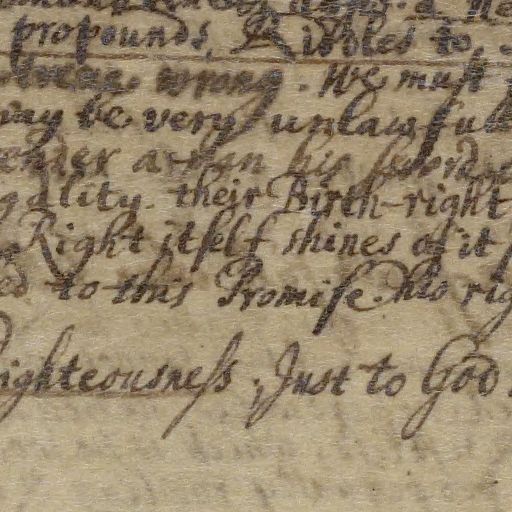 propounds, Ribles to
wrong. We must
may be very unlawful
a man his sword
gality. their Birth-right
Right itſelf shines of it
ed to this Promiſe. his rig
ighteousneſs, Just to God.